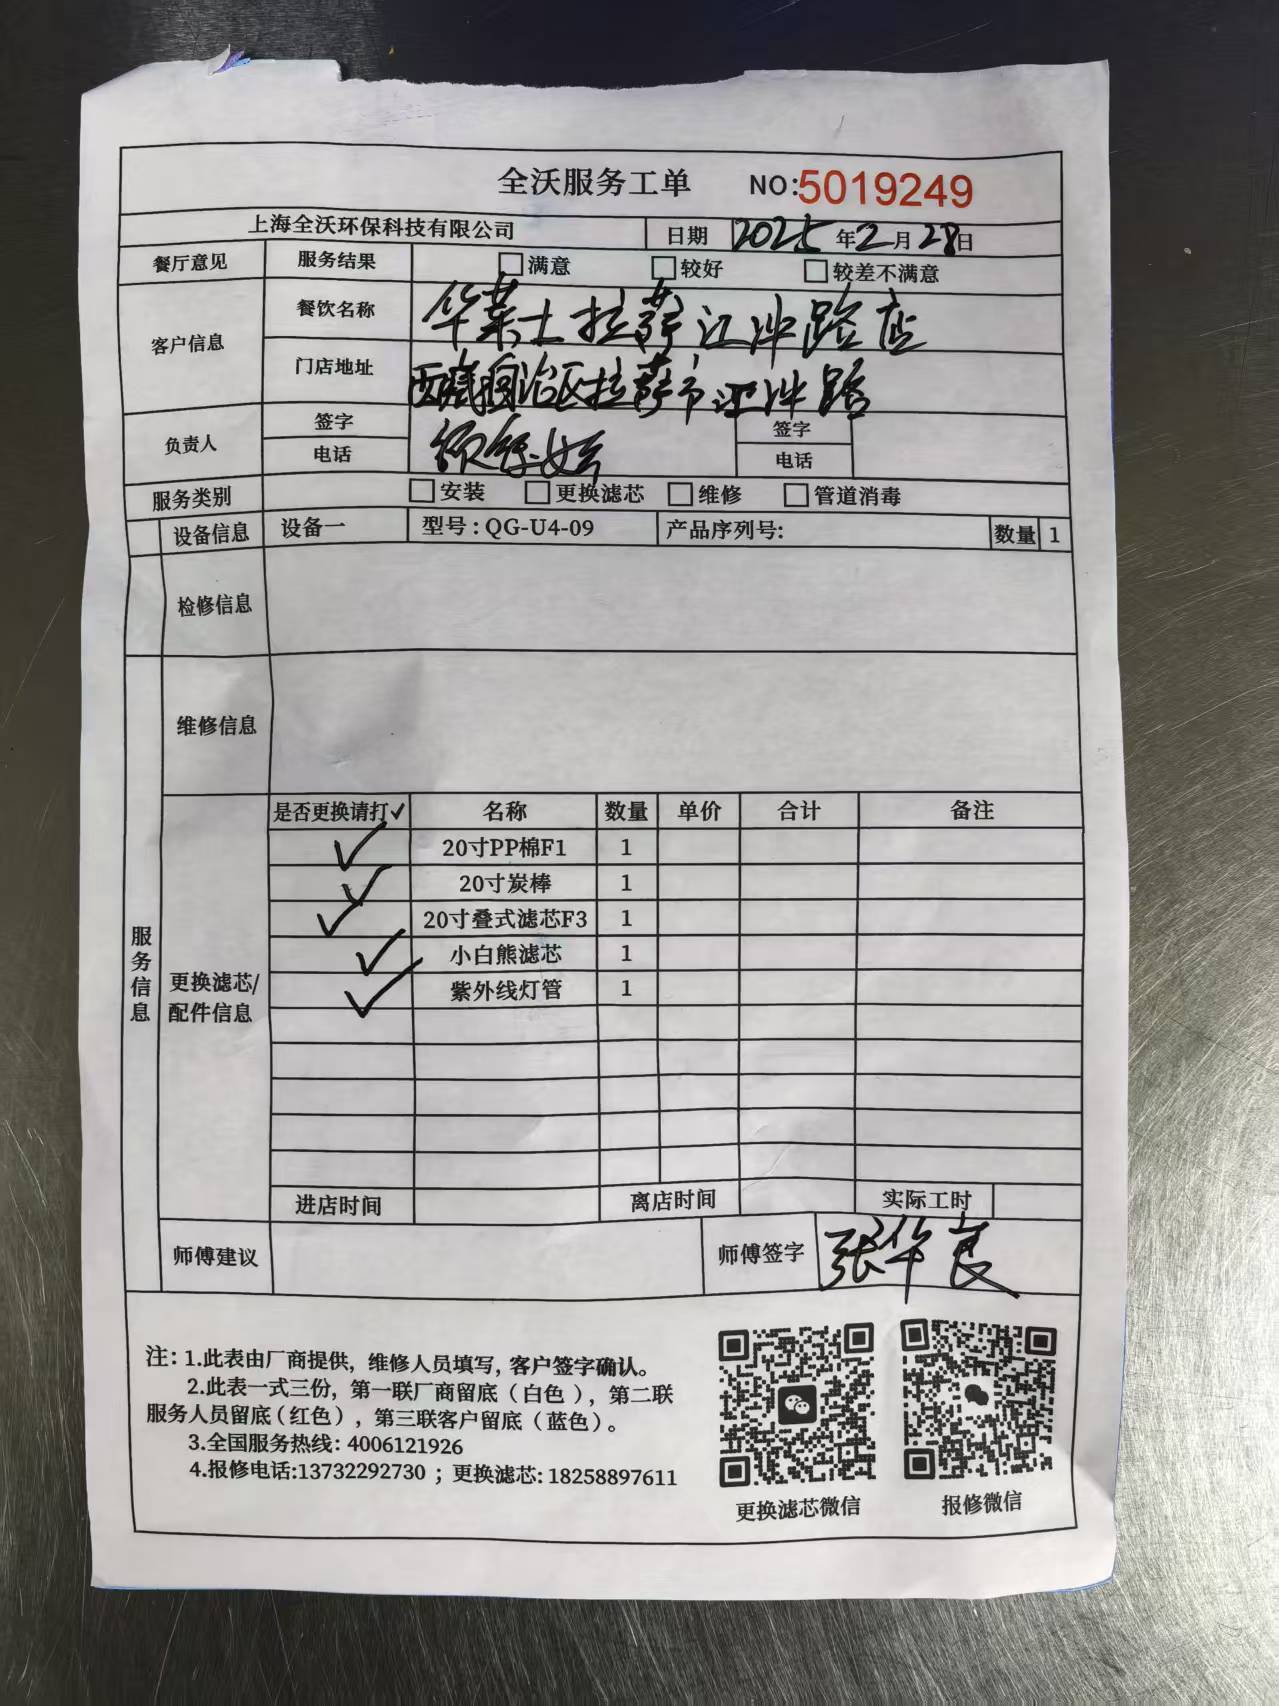 全沃服务工单 NO:5019249
上海全沃环保科技有限公司 日期 2025年2月28日
餐厅意见 服务结果 □满意 □较好 □较差不满意
客户信息 餐饮名称 华莱士拉萨江冲路店
门店地址 西藏自治区拉萨市江冲路
负责人 签字 签字
电话 电话
服务类别 □安装 □更换滤芯 □维修 □管道消毒
设备信息 设备一 型号:QG-U4-09 产品序列号: 数量 1
检修信息
维修信息
服务信息
更换滤芯/配件信息
是否更换请打✓ 名称 数量 单价 合计 备注
✓ 20寸PP棉F1 1
✓ 20寸炭棒 1
✓ 20寸叠式滤芯F3 1
✓ 小白熊滤芯 1
✓ 紫外线灯管 1
进店时间 离店时间 实际工时
师傅建议 师傅签字 张华良
注：1.此表由厂商提供，维修人员填写，客户签字确认。
2.此表一式三份，第一联厂商留底（白色），第二联
服务人员留底（红色），第三联客户留底（蓝色）。
3.全国服务热线：4006121926
4.报修电话:13732292730；更换滤芯:18258897611
更换滤芯微信 报修微信